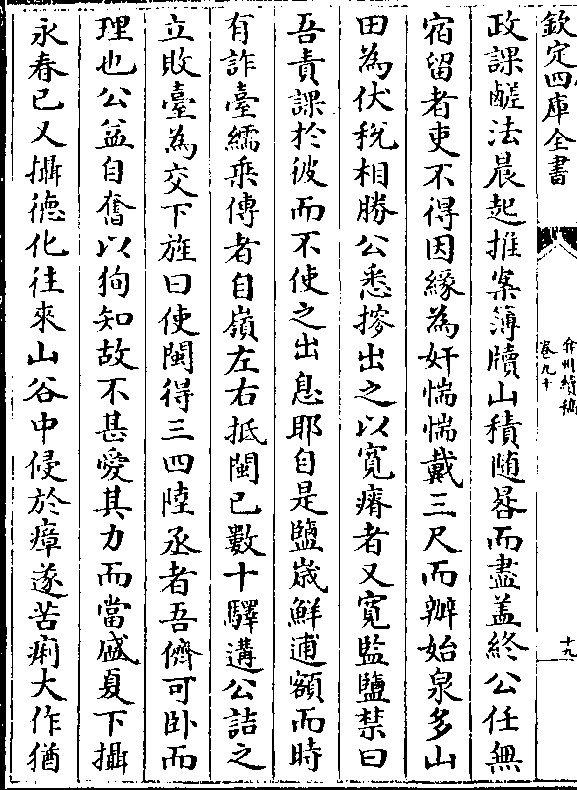 欽定四庫全書
弇州續稿
卷九十
十九
政課鹺法晨起推案簿牘山積随晷而盡盖終公任無
宿留者吏不得因緣為奸惴惴戴三尺而辦始泉多山
田為伏稅相勝公悉摉出之以寛瘠者又寛監鹽禁曰
吾責課於彼而不使之出息耶自是鹽嵗鮮逋額而時
有詐臺繻乘傳者自嶺左右抵閩已數十驛遘公詰之
立敗臺為交下旌曰使閩得三四陸丞者吾儕可卧而
理也公益自奮以狥知故不甚愛其力而當盛夏下攝
永春已又攝徳化往來山谷中侵於瘴遂苦痢大作猶